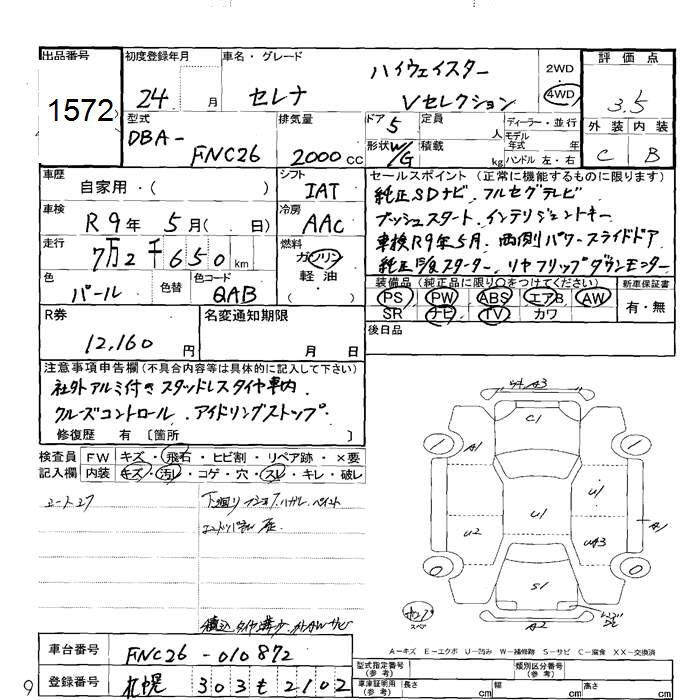 出品番号 初度登録年月 車名・グレード ハイウェイスター 2WD 評価点
1572 24 月 セレナ Vセレクション 4WD 3.5
型式 排気量 ドア 5 定員 人 ディーラー・並行 外装 内装
DBA- FNC26 2000cc 形状 W/G 積載 kg モデル年式 年 ハンドル 左・右 C B
車歴 自家用・( ) シフト IAT セールスポイント(正常に機能するものに限ります)
車検 R9年 5月( 日) 冷房 AAC 純正SDナビ、フルセグテレビ
プッシュスタート、インテリジェントキー
走行 7万2千650km 燃料 ガソリン 軽油 ・( ) 車検R9年5月、両側パワースライドドア
純正E/gスターター、リヤフリップダウンモニター
色 パール 色替 色コード QAB 装備品(純正品に限り○をつけてください) 新車保証書
PS PW ABS エアB AW 有・無
SR ナビ TV カワ
R券 12,160円 名変通知期限 月 日 後日品
注意事項申告欄(不具合内容等は具体的に記入して下さい)
社外アルミ付きスタッドレスタイヤ車内
クルーズコントロール、アイドリングストップ
修復歴 有 〔箇所 〕
検査員 FW キズ・飛石・ヒビ割・リペア跡・×要
記入欄 内装 キズ・汚レ・コゲ・穴・スレ・キレ・破レ
下廻り
A3
C1
A1
U1
U2 U1 U43 A1
S1
A2
A-キズ E-エクボ U-凹み W-補修跡 S-サビ C-腐食 XX-交換済
車台番号 FNC26-010872
登録番号 札幌 303 も 2102
型式指定番号(参考) 類別区分番号(参考)
車検証明用(参考) 長さ cm 幅 cm 高さ cm
9